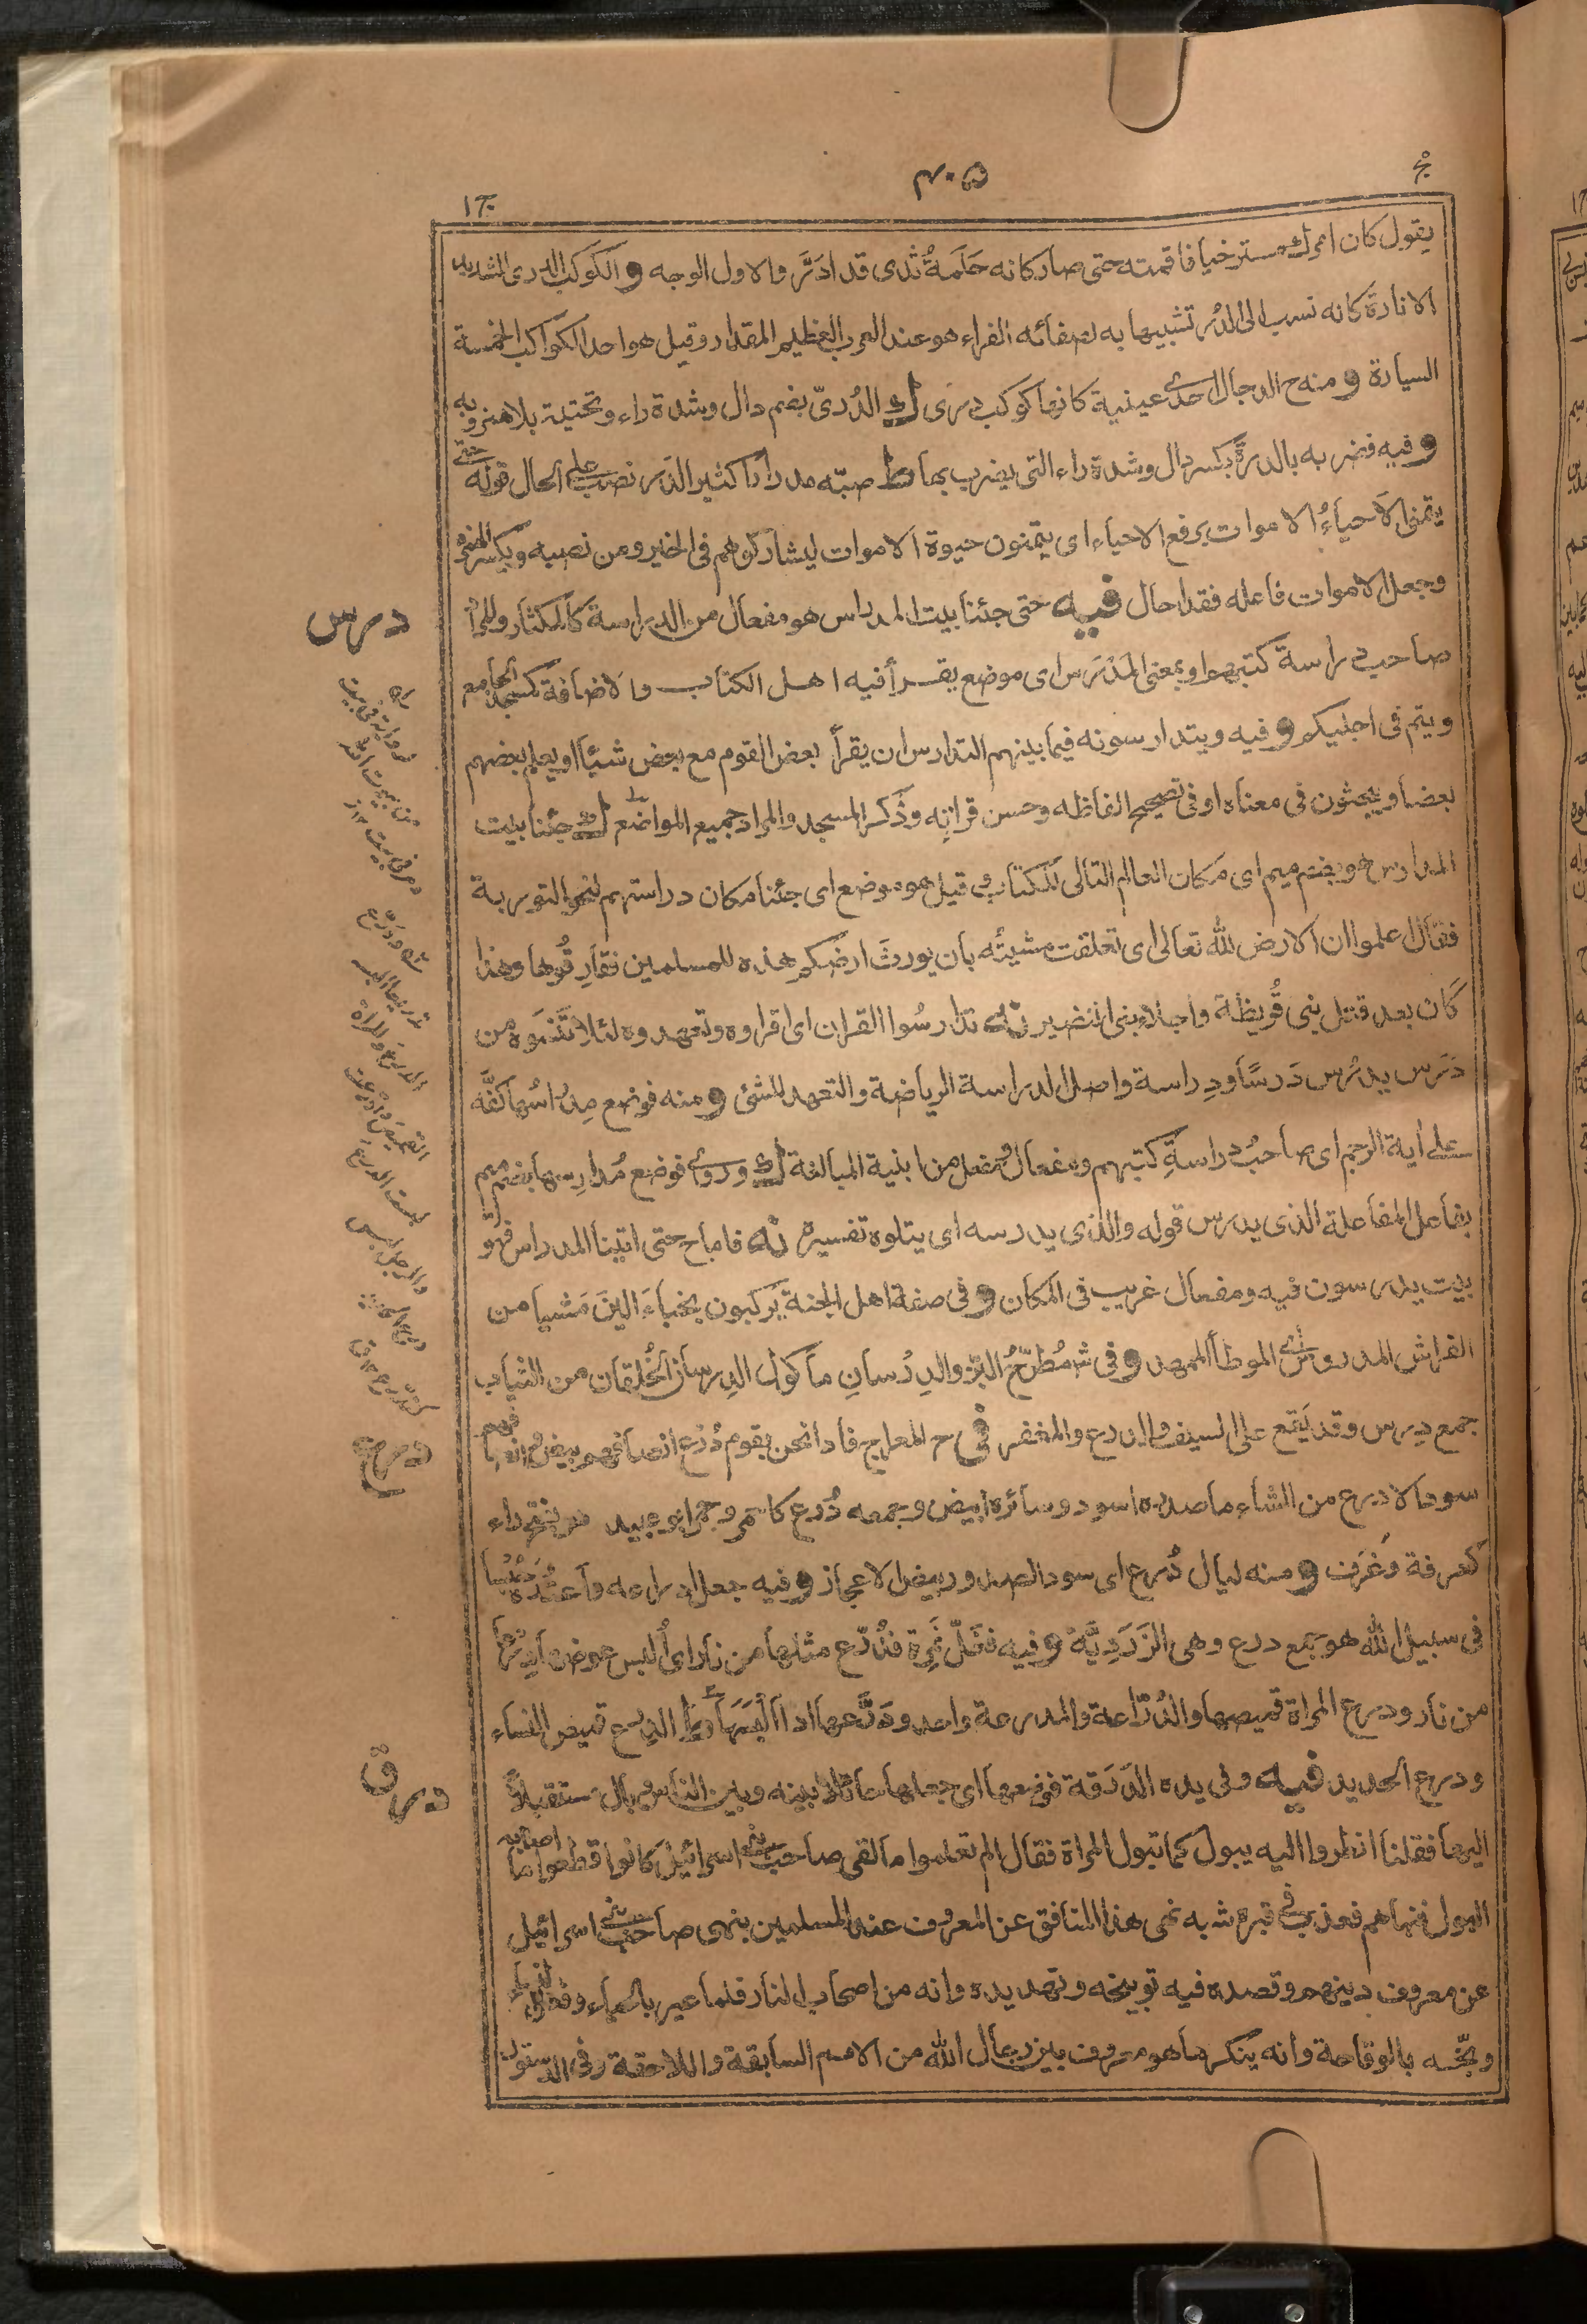 ج ١
٤٠٥
يقول كان امرك مسترخيا فاقمته حتى صار كانه حَلَمةُ ثدى قد ادَرَّ والاول الوجه و الكوكب الدرى الشديد
الانارة كانه نسب الى الدُر تشبيها به لصفائه الفراء هو عند العرب العظيم المقدار وقيل هو احد الكواكب الخمسة
السيارة و منه ح الدجال احدى عينيه كانها كوكب درى ك الدُرىّ بضم دال وشدة راء وتحتية بلا همز وبه
و فيه فضربه بالدرة بكسر دال وشدة راء التى يضرب بها ط صبّه مدرارا كثير الدَر نصب على الحال قوله حتى
يتمنى الاَحياءُ الاموات برفع الاحياء اى يتمنون حيوة الاموات ليشاركوهم فى الخير ومن نصبه وبكسر الهمزة
وجعل الاموات فاعله فقد احال فيه حتى جئنا بيت المدراس هو مفعال من الدراسة كالمكثار والمراد
صاحب دراسة كتبهم او بمعنى المَدْرَس اى موضع يقرأ فيه اهل الكتاب والاضافة كمسجد الجامع
ويتم فى اجليكم و فيه ويتدارسونه فيما بينهم التدارس ان يقرأ بعض القوم مع بعض شيئا او يعلم بعضهم
بعضا ويبحثون فى معناه او فى تصحيح الفاظه وحسن قرائته وذَكر المسجد والمراد جميع المواضع ك جئنا بيت
المدارس هو بضم ميم اى مكان العالم التالى للكتاب و قيل هو موضع اى جئنا مكان دراستهم لنحو التورية
فقال اعلموا ان الارض لله تعالى اى تعلقت مشيئته بان يورث ارضكم هذه للمسلمين ففارِقُوها وهذا
كان بعد قتل بنى قُريظة واجلاء بنى النضير نه تدارسُوا القران اى اقراوه وتعهدوه لئلا تنسَوه من
دَرَس يدرُس دَرسًا ودِراسة واصل الدراسة الرياضة والتعهد للشئ و منه فوضع مِدْراسُها كفَّه
على أية الرجم اى صاحبُ دراسةِ كتبهم ومفعال ومفعل من ابنية المبالغة ك وروى فوضع مُدارِسها بضم ميم
بفاعل المفاعلة الذى يدرس قوله والذى يدرسه اى يتلوه تفسيره نه فاما ح حتى اتينا المدراس فهو
بيت يدرسون فيه ومفعال غريب فى المكان و فى صفة اهل الجنة يَركبون نجباءَ اَلينَ مَشيا من
الفراش المدروس اى الموطأ الممهد و فى ش مُطَّرَحُ البزّ والدِرْسانِ مأكول الدِرسان الخُلقان من الثياب
جمع دِرس وقد يَقع على السيف والدرع والمغفر فى ح المعراج فاذا نحن بقوم دُرْع انصافهم بيض وانصافهم
سود الادرع من الشاء ما صدره اسود وسائره ابيض وجمعه دُرْع كاحمر وحمر ابو عبيد هو بفتح راء
كغرفة وغُرَف و منه ليال دُرَع اى سود الصدور بيض الاعجاز و فيه جعل ادراعه واعتُدَه حُبُسا
فى سبيل الله هو جمع درع وهى الزَرَديَّة و فيه فغَلَّ نَمِرة فدُرّع مثلها من نار اى اُلبس عوضها دِرعا
من نار ودرع المراة قميصها والدُرّاعة والمدرعة واحد ودَرَّعها اذا البَسَها ط الدِرع قميص النساء
ودرع الحديد فيه وفى يده الدَرَقة فوضعها اى جعلها حائلا بينه وبين الناس وبال مستقبلاً
اليها فقلنا انظروا اليه يبول كما تبول المراة فقال الم تعلموا ما لقى صاحب بنى اسرائيل كانوا قطعوا ما اصابه
البول فنهاهم فعذب فى قبره شبه نهى هذا المنافق عن المعروف عند المسلمين بنهى صاحب بنى اسرائيل
عن معروف دينهم وقصده فيه توبيخه وتهديده وانه من اصحاب النار فلما عير بالحياء وفعل النساء
وبّخه بالوقاحة وانه ينكر ما هو معروف بين رجال الله من الامم السابقة واللاحقة
درس
درع
درق